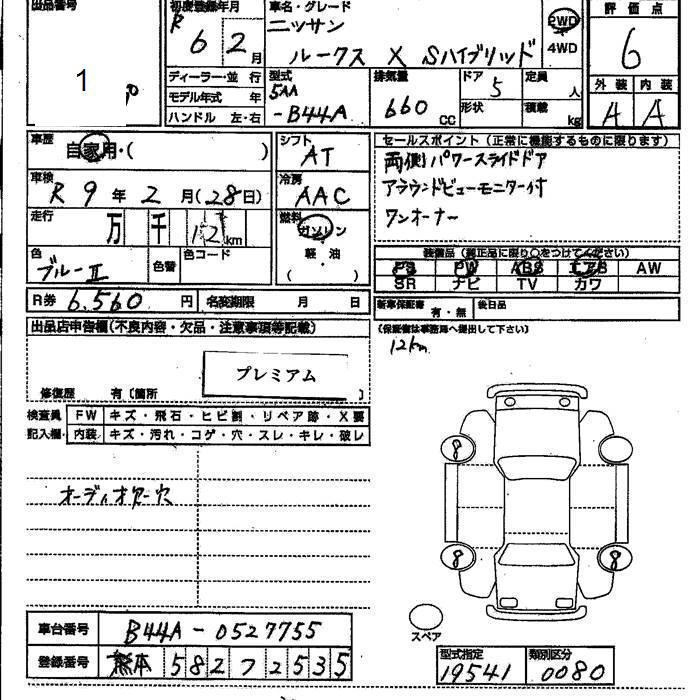 出品番号
1
初度登録年月
R 6 2 月
車名・グレード
ニッサン
ルークス X Sハイブリッド
2WD
4WD
評価点
6
外装 内装
A A
ディーラー・並 行
モデル年式 年
ハンドル 左・右
型式
5AA
-B44A
排気量
660 CC
ドア
5
形状
定員
人
積載
kg
車歴
自家用・( )
シフト
AT
車検
R 9 年 2 月(28日)
冷房
AAC
走行
万 千 12 km
燃料
ガソリン
軽・油
( )
色
ブルーII
色替
色コード
R券 6,560 円
名変期限 月 日
セールスポイント(正常に機能するものに限ります)
両側パワースライドドア
アラウンドビューモニター付
ワンオーナー
装備品(純正品に限り○をつけてください)
PS PW ABS エアB AW
SR ナビ TV カワ
新車保証書 有・無
後日品
(保証書は事務局へ提出して下さい)
12km
出品店申告欄(不良内容・欠品・注意事項等記載)
プレミアム
修復歴 有〔箇所 〕
検査員 FW キズ・飛石・ヒビ割・リペア跡・X要
記入欄 内装 キズ・汚れ・コゲ・穴・スレ・キレ・破レ
オーディオカー穴
8
8 8
スペア
車台番号 B44A-0527755
登録番号 熊本 582 7 2535
型式指定 類別区分
19541 0080